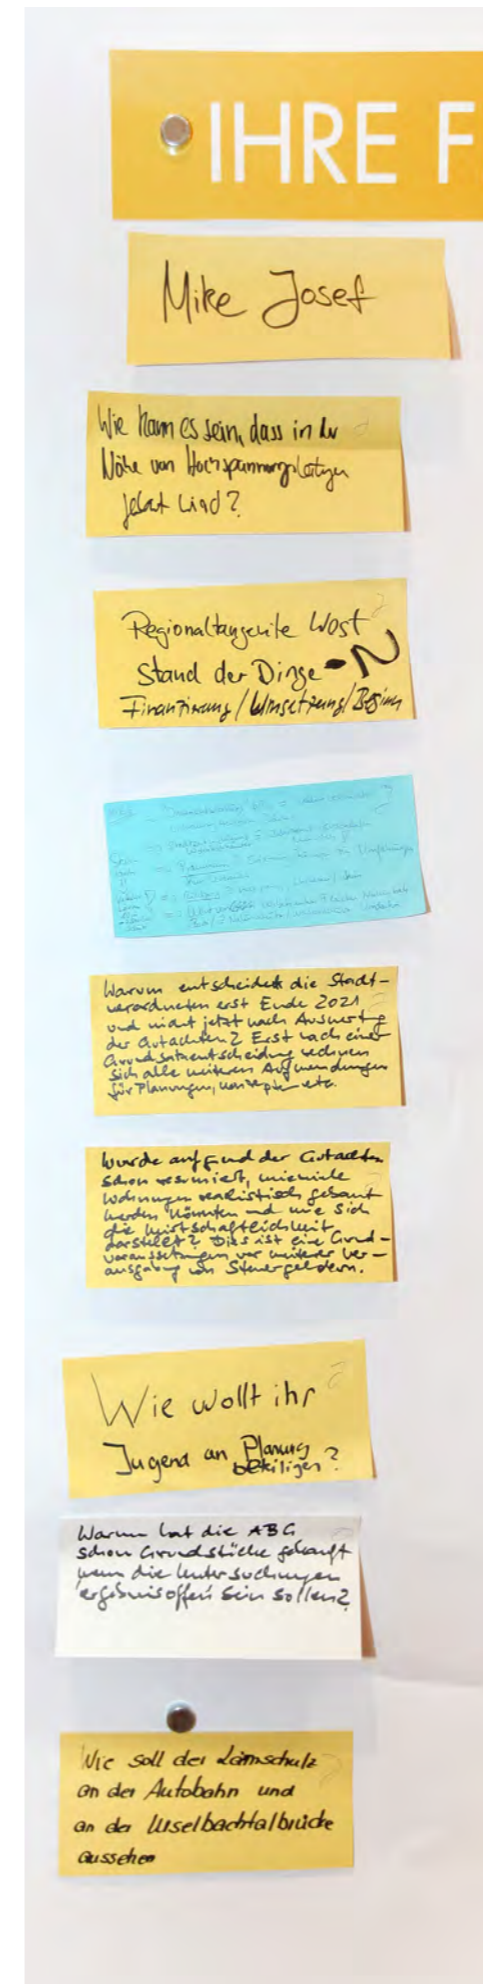 IHRE F
Mike Josef
Wie kann es sein, dass in der
Nähe von Hochspannungsleitungen
gebaut wird?
Regionaltangente West
Stand der Dinge
Finanzierung/Umsetzung/Beginn
Warum entscheidet die Stadt-
verordneten erst Ende 2021
und nicht jetzt nach Auswertg
der Gutachten? Erst nach einer
Grundsatzentscheidung rechnen
sich alle weiteren Aufwendungen
für Planungen, Konzepte etc.
Wurde aufgrund der Gutachten
schon resumiert, wieviele
Wohnungen realistisch gebaut
werden könnten und wie sich
die Wirtschaftlichkeit
darstellt? Dies ist eine Grund-
voraussetzungen vor weiterer Ver-
ausgabung von Steuergeldern.
Wie wollt ihr
Jugend an Planung
beteiligen?
Warum hat die ABG
schon Grundstücke gekauft
wenn die Untersuchungen
ergebnisoffen sein sollen?
Wie soll der Lärmschutz
an der Autobahn und
an der Urselbachtalbrücke
aussehen